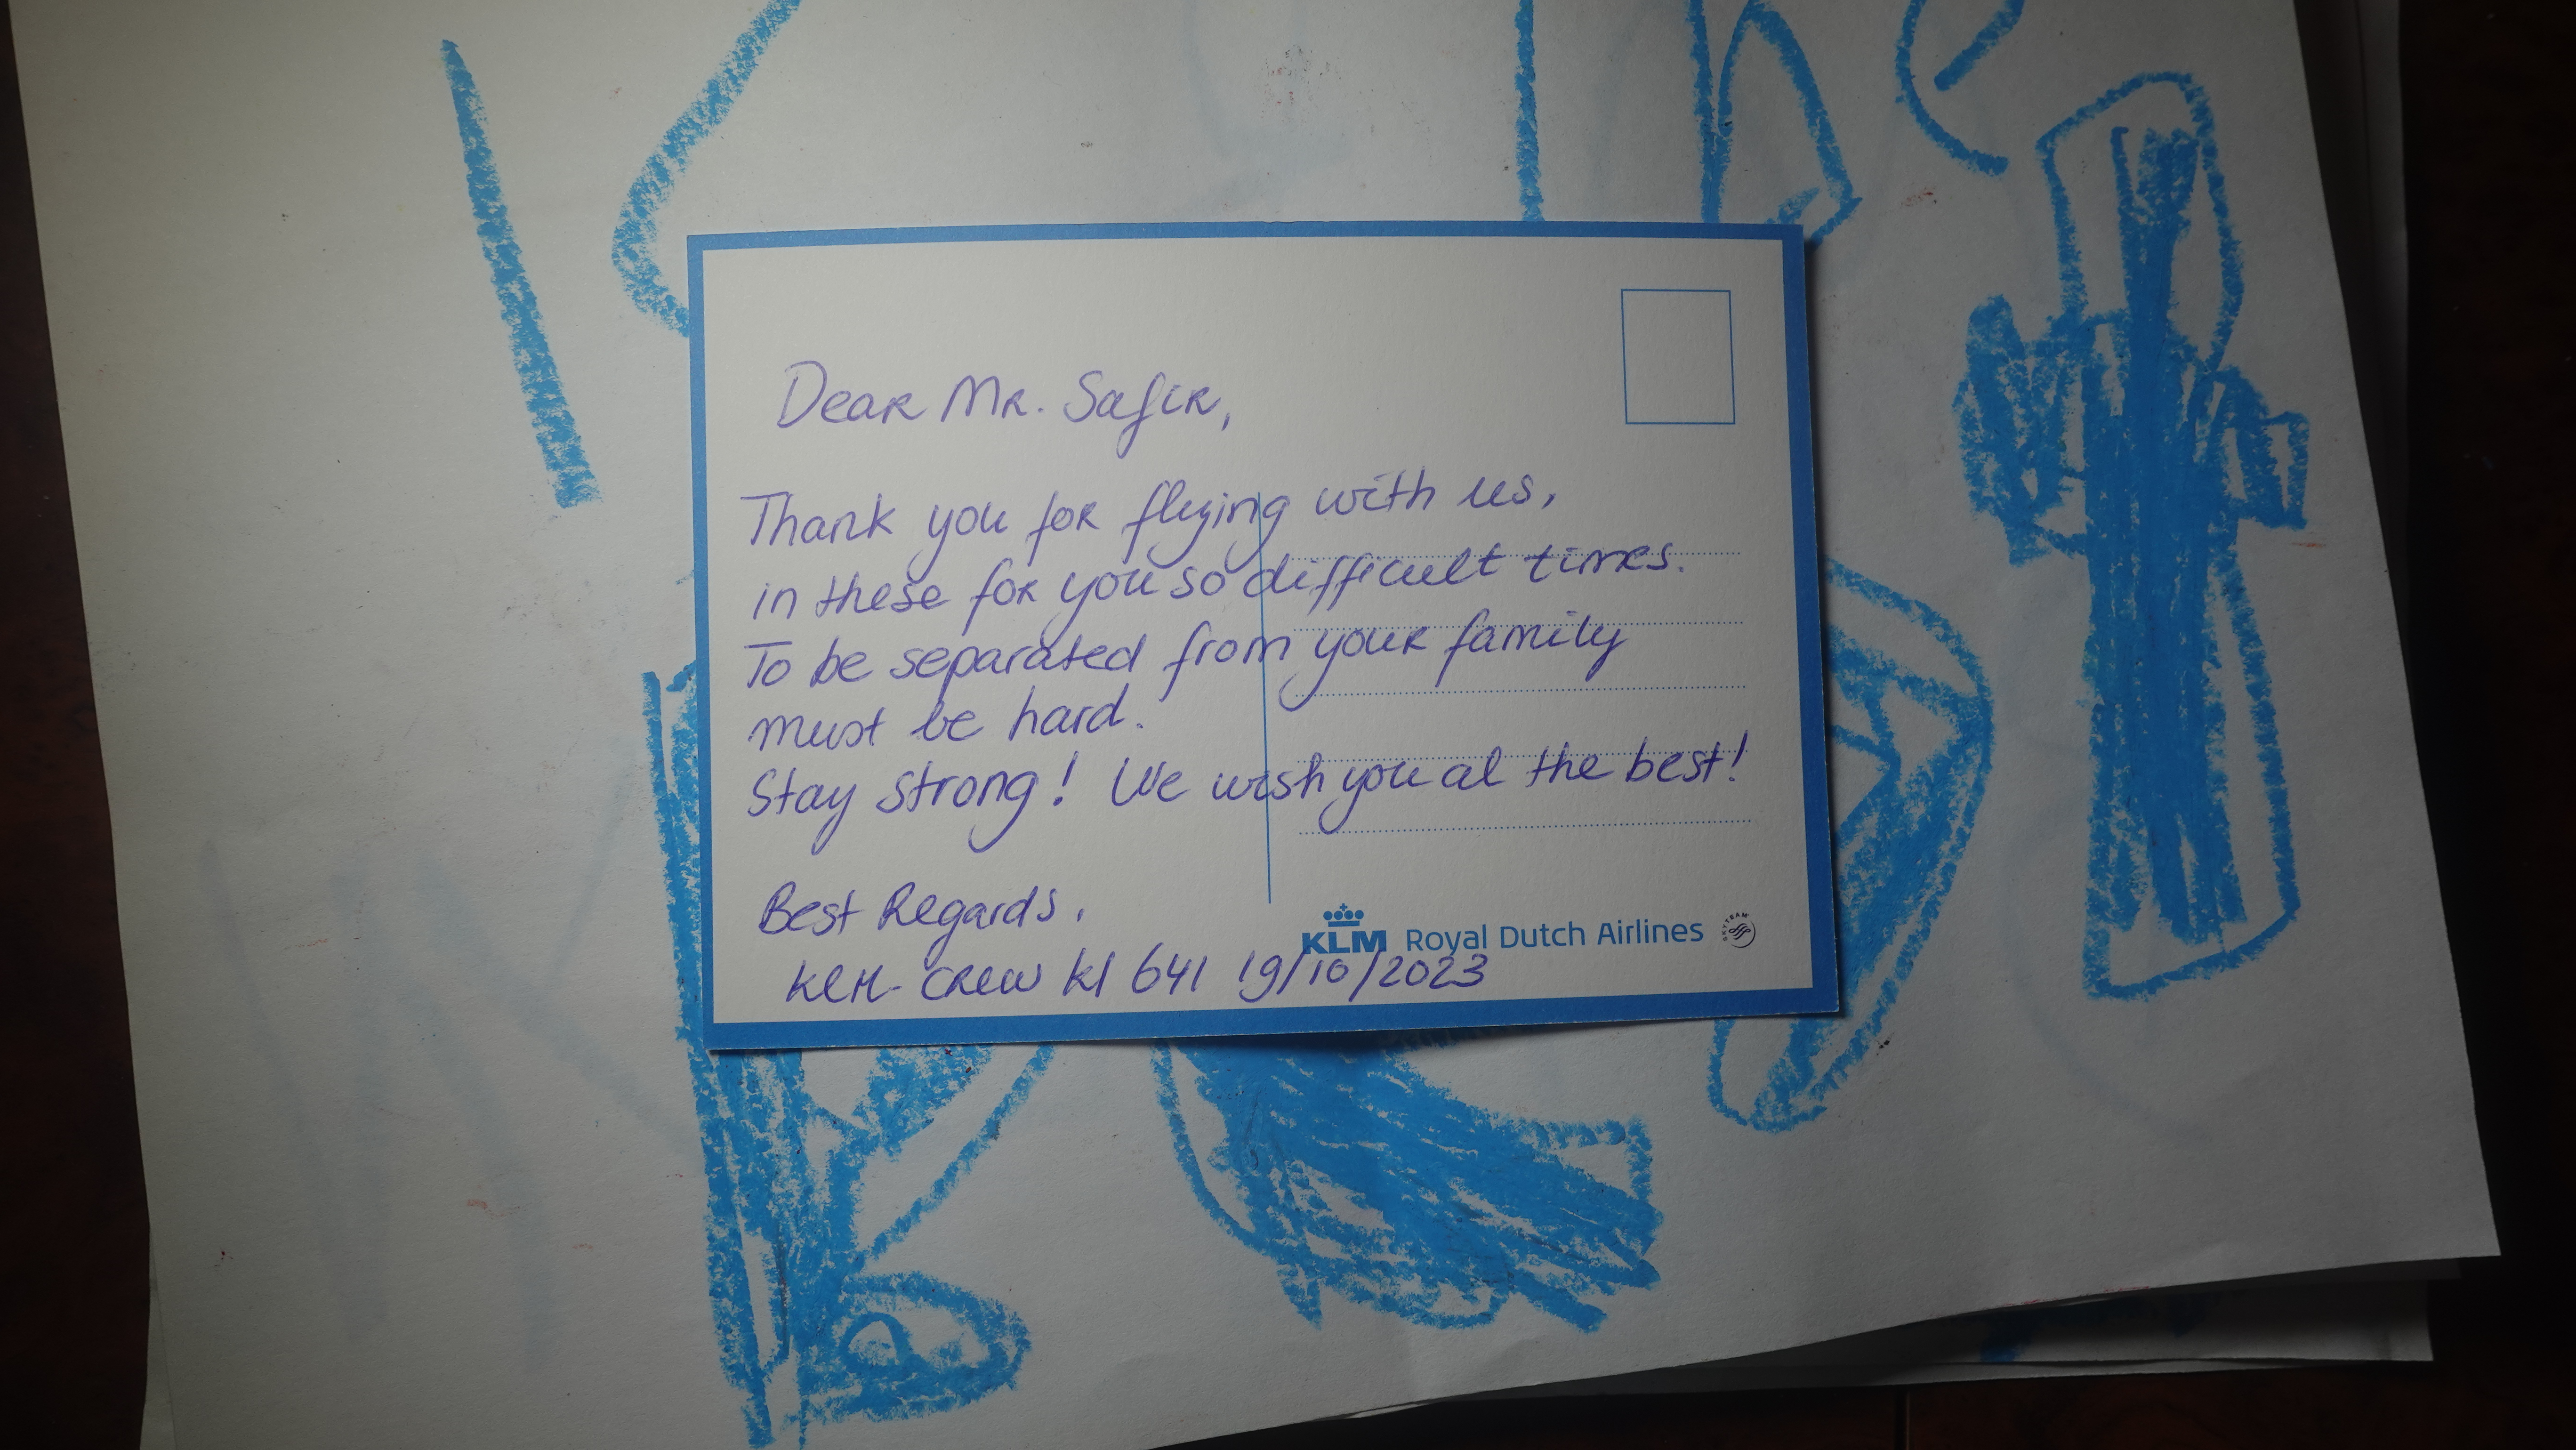 he
Dear Mr. Safir,
Thank you for flying with us,
in these for you so difficult times.
To be separated from your family
must be hard.
Stay strong! We wish you al the best!
Best Regards,
KLM Royal Dutch Airlines SKYTEAM
KLM-crew kl 641 19/10/2023